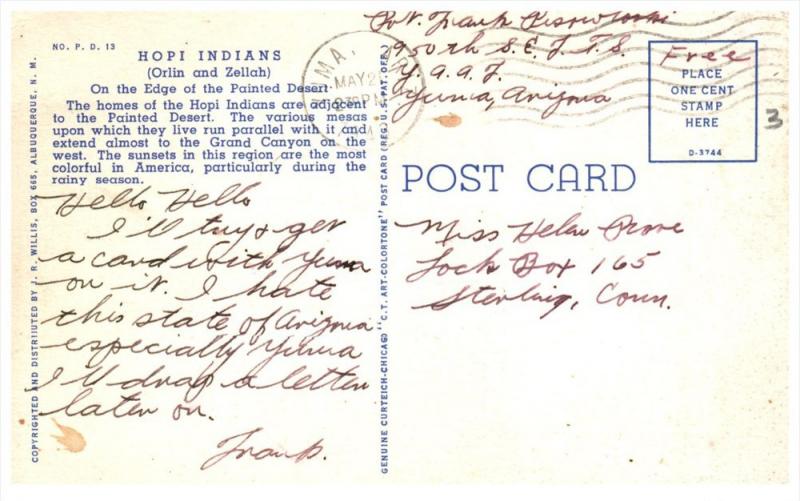 NO. P. D. 13
HOPI INDIANS
(Orlin and Zellah)
On the Edge of the Painted Desert
The homes of the Hopi Indians are adjacent
to the Painted Desert. The various mesas
upon which they live run parallel with it and
extend almost to the Grand Canyon on the
west. The sunsets in this region are the most
colorful in America, particularly during the
rainy season.
Hello Hello
I'll try & get
a card with Yuma
on it. I hate
this state of Arizona
especially Yuma
I'll drop a letter
later on.
Frank.
COPYRIGHTED AND DISTRIBUTED BY J. R. WILLIS, BOX 665, ALBUQUERQUE, N. M.
GENUINE CURTEICH-CHICAGO "C.T. ART-COLORTONE" POST CARD (REG. U.S. PAT. OFF.)
MAY 2
PM
Pvt. Frank
950th S.E.F.T.S.
Y.A.A.F.
Yuma, Arizona
Free
PLACE
ONE CENT
STAMP
HERE
D-3744
3
POST CARD
Miss Helen
Lock Box 165
Sterling, Conn.